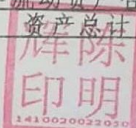 资产总计
辉陈
印明
1410020022050